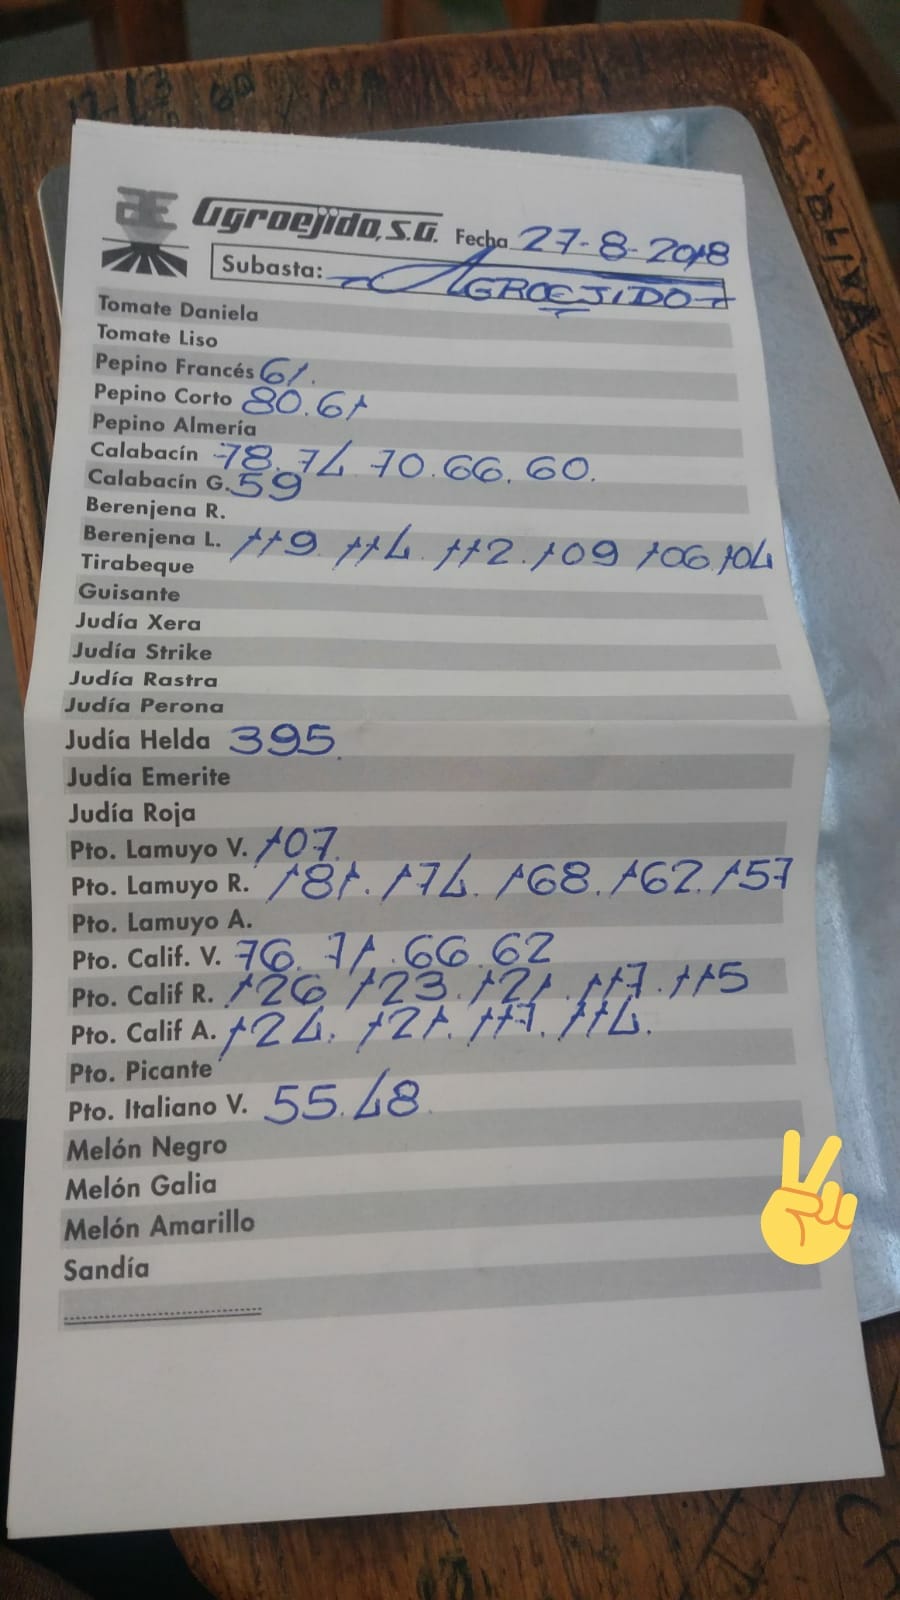 Agroejido, S.A. Fecha 27-8-2018
Subasta: AGROEJIDO
Tomate Daniela
Tomate Liso
Pepino Francés 61.
Pepino Corto 80.61
Pepino Almería
Calabacín 78.74 70.66.60.
Calabacín G. 59
Berenjena R.
Berenjena L. 119. 114. 112.109 106.104
Tirabeque
Guisante
Judía Xera
Judía Strike
Judía Rastra
Judía Perona
Judía Helda 395.
Judía Emerite
Judía Roja
Pto. Lamuyo V. 107.
Pto. Lamuyo R. 181.174.168.162.157
Pto. Lamuyo A.
Pto. Calif. V. 76. 71.66.62
Pto. Calif R. 126 123.121.117.115
Pto. Calif A. 124. 121.117.114.
Pto. Picante
Pto. Italiano V. 55.48.
Melón Negro
Melón Galia
Melón Amarillo
Sandía